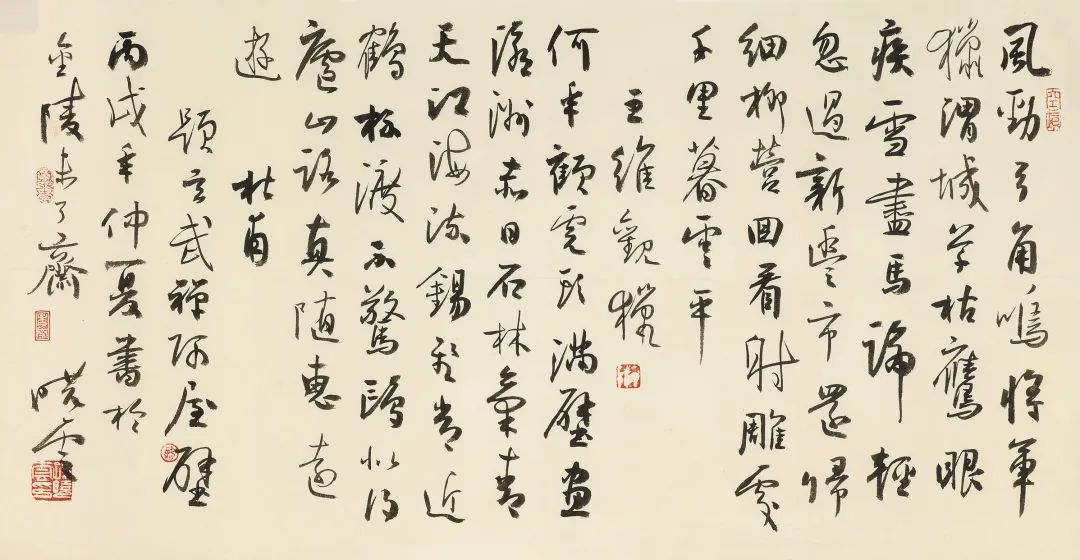 風勁弓角鳴將軍
獵渭城草枯鷹眼
疾雪盡馬蹄輕
忽過新豐市還歸
細柳營回看射雕處
千里暮雲平
王維觀獵
何年顧虎頭滿壁畫
瀛洲赤日石林氣青
天江海流錫飛常近
鶴杯渡不驚鷗似得
廬山路真隨惠遠
遊 杜甫
題玄武禪師屋壁
丙戌年仲夏書於
金陵未了齋 曉雲